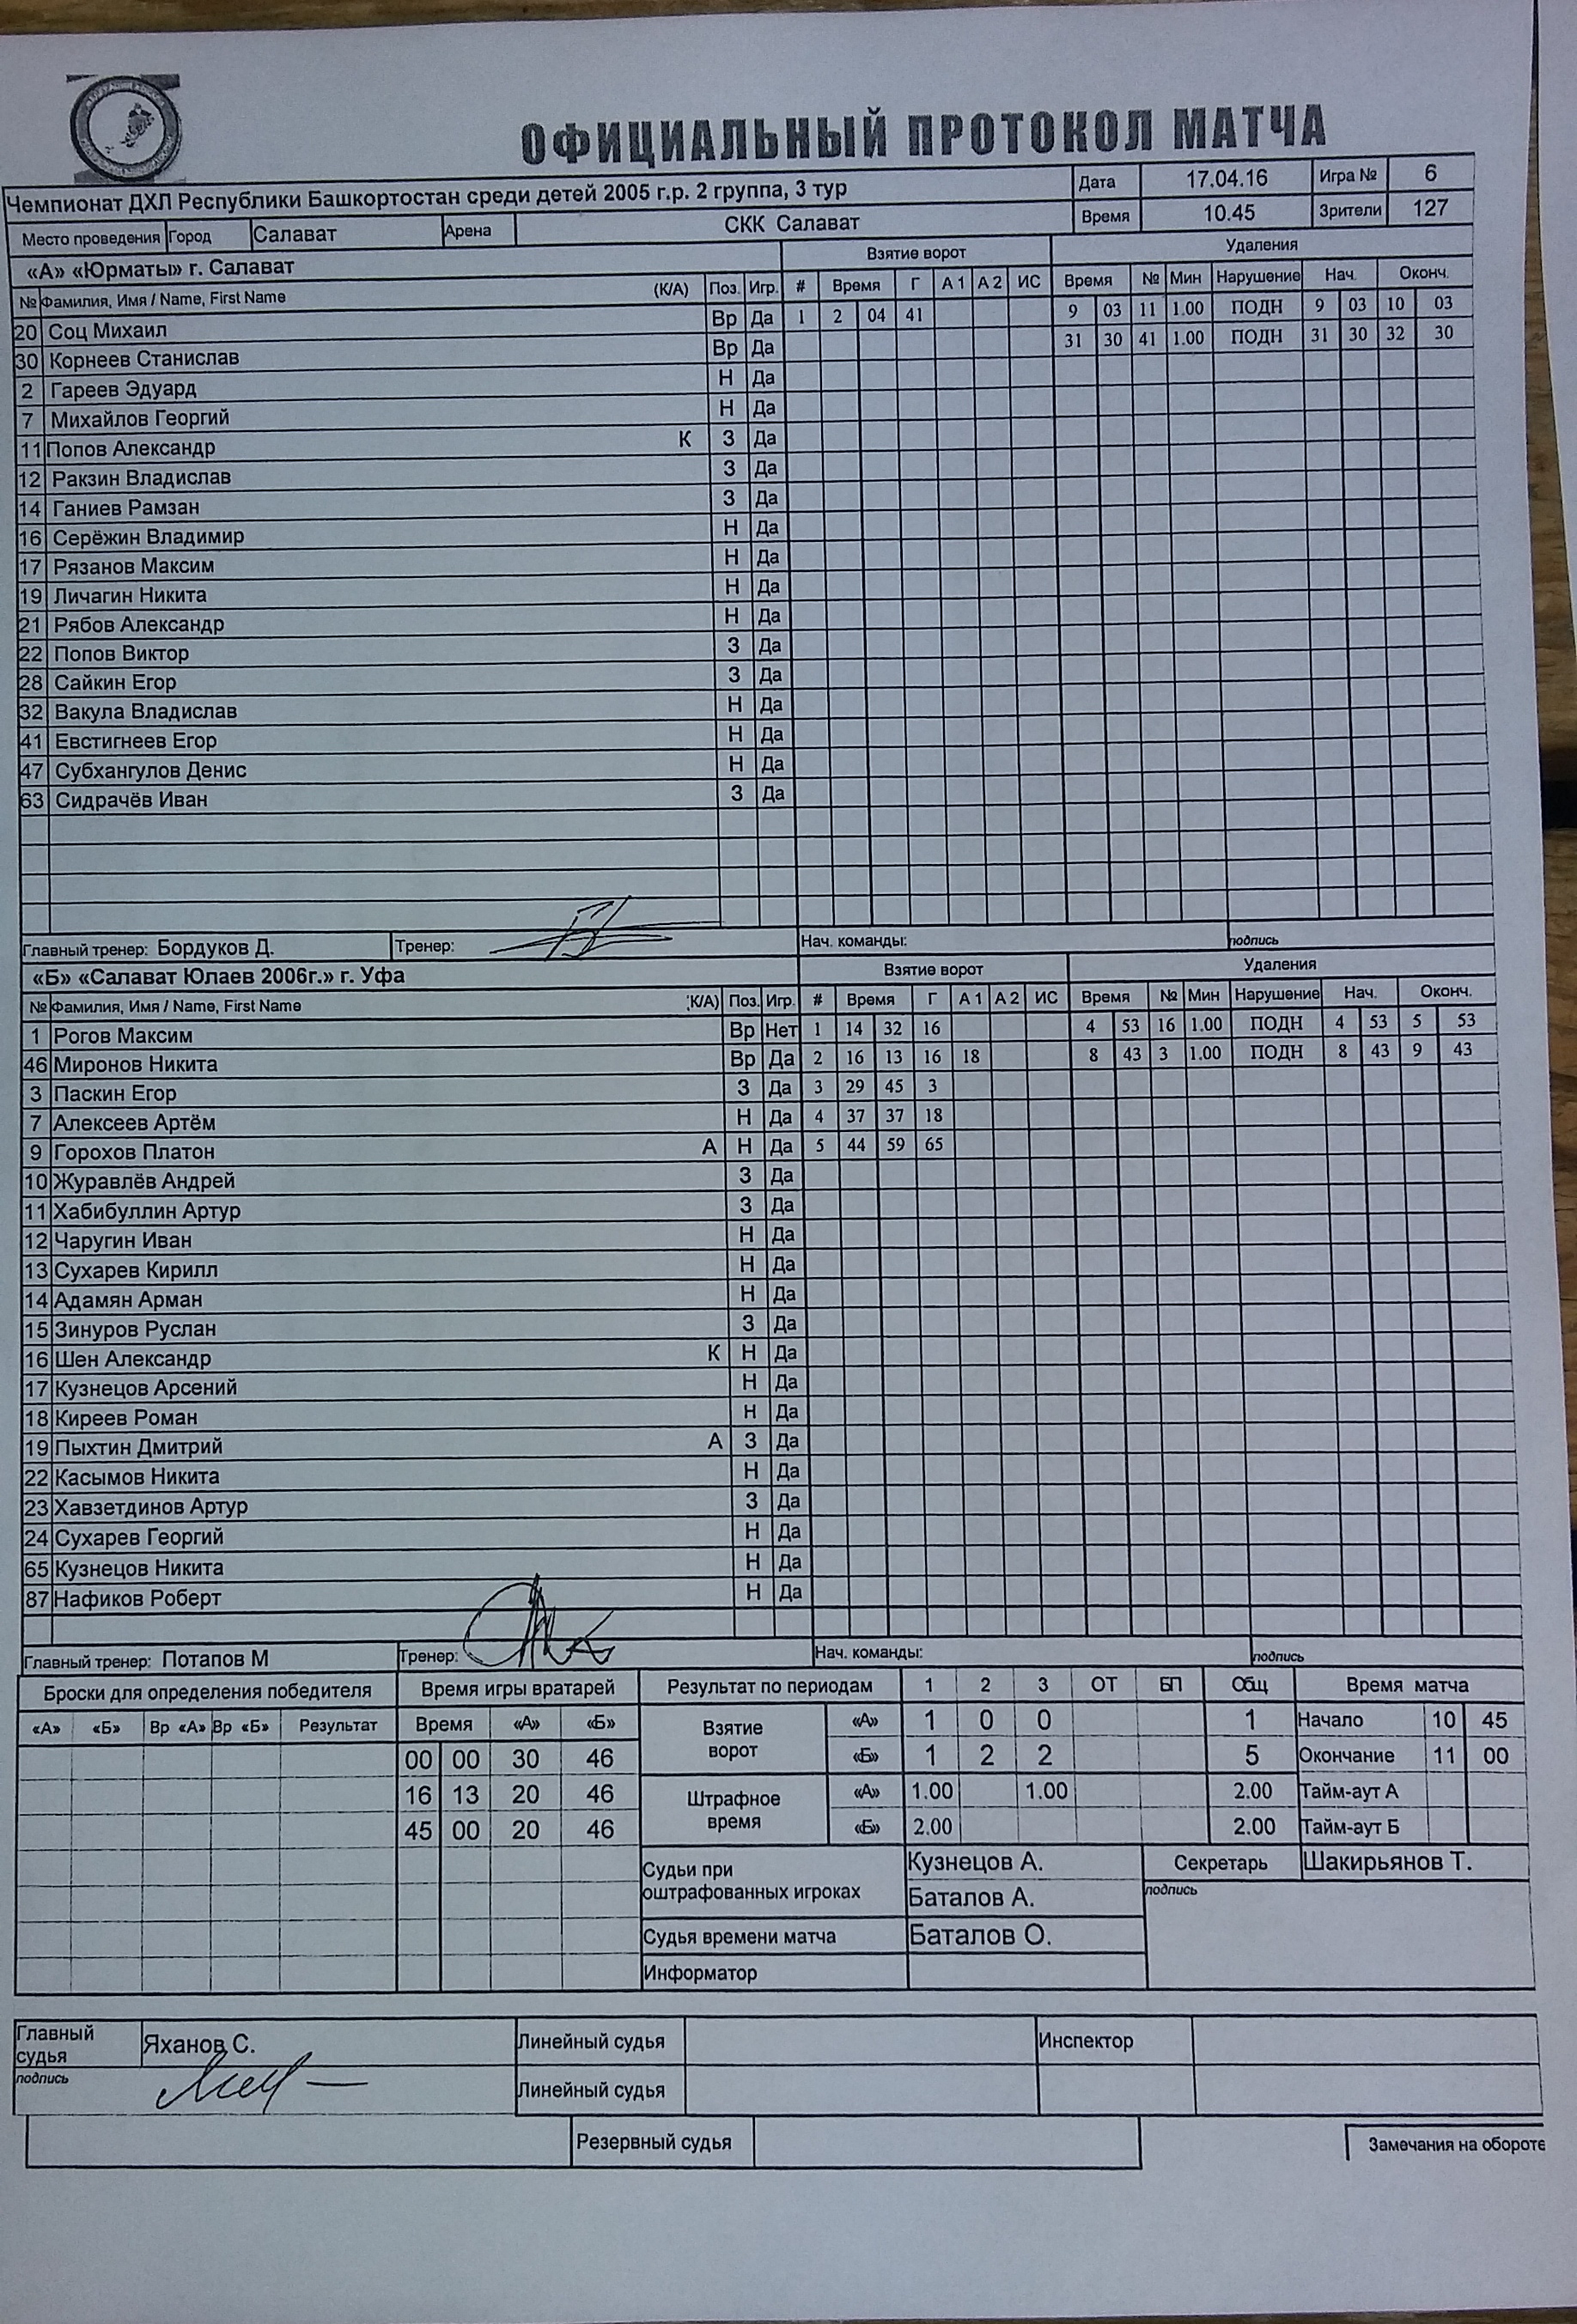 ОФИЦИАЛЬНЫЙ ПРОТОКОЛ МАТЧА
Чемпионат ДХЛ Республики Башкортостан среди детей 2005 г.р. 2 группа, 3 тур Дата 17.04.16 Игра № 6
Место проведения Город Салават Арена СКК Салават Время 10.45 Зрители 127
«А» «Юрматы» г. Салават Взятие ворот Удаления
№ Фамилия, Имя / Name, First Name (К/А) Поз. Игр. # Время Г А 1 А 2 ИС Время № Мин Нарушение Нач. Оконч.
20 Соц Михаил Вр Да 1 2 04 41 9 03 11 1.00 ПОДН 9 03 10 03
30 Корнеев Станислав Вр Да 31 30 41 1.00 ПОДН 31 30 32 30
2 Гареев Эдуард Н Да
7 Михайлов Георгий Н Да
11 Попов Александр К З Да
12 Ракзин Владислав З Да
14 Ганиев Рамзан З Да
16 Серёжин Владимир Н Да
17 Рязанов Максим Н Да
19 Личагин Никита Н Да
21 Рябов Александр Н Да
22 Попов Виктор З Да
28 Сайкин Егор З Да
32 Вакула Владислав Н Да
41 Евстигнеев Егор Н Да
47 Субхангулов Денис Н Да
63 Сидрачёв Иван З Да
Главный тренер: Бордуков Д. Тренер: Нач. команды: подпись
«Б» «Салават Юлаев 2006г.» г. Уфа Взятие ворот Удаления
№ Фамилия, Имя / Name, First Name К/А) Поз. Игр. # Время Г А 1 А 2 ИС Время № Мин Нарушение Нач. Оконч.
1 Рогов Максим Вр Нет 1 14 32 16 4 53 16 1.00 ПОДН 4 53 5 53
46 Миронов Никита Вр Да 2 16 13 16 18 8 43 3 1.00 ПОДН 8 43 9 43
3 Паскин Егор З Да 3 29 45 3
7 Алексеев Артём Н Да 4 37 37 18
9 Горохов Платон А Н Да 5 44 59 65
10 Журавлёв Андрей З Да
11 Хабибуллин Артур З Да
12 Чаругин Иван Н Да
13 Сухарев Кирилл Н Да
14 Адамян Арман Н Да
15 Зинуров Руслан З Да
16 Шен Александр К Н Да
17 Кузнецов Арсений Н Да
18 Киреев Роман Н Да
19 Пыхтин Дмитрий А З Да
22 Касымов Никита Н Да
23 Хавзетдинов Артур З Да
24 Сухарев Георгий Н Да
65 Кузнецов Никита Н Да
87 Нафиков Роберт Н Да
Главный тренер: Потапов М Тренер: Нач. команды: подпись
Броски для определения победителя Время игры вратарей Результат по периодам 1 2 3 ОТ БП Общ Время матча
«А» «Б» Вр «А» Вр «Б» Результат Время «А» «Б» Взятие ворот «А» 1 0 0 1 Начало 10 45
00 00 30 46 «Б» 1 2 2 5 Окончание 11 00
16 13 20 46 Штрафное время «А» 1.00 1.00 2.00 Тайм-аут А
45 00 20 46 «Б» 2.00 2.00 Тайм-аут Б
Судьи при оштрафованных игроках Кузнецов А. Секретарь Шакирьянов Т.
Баталов А. подпись
Судья времени матча Баталов О.
Информатор
Главный судья Яханов С. Линейный судья Инспектор
подпись Линейный судья
Резервный судья Замечания на обороте